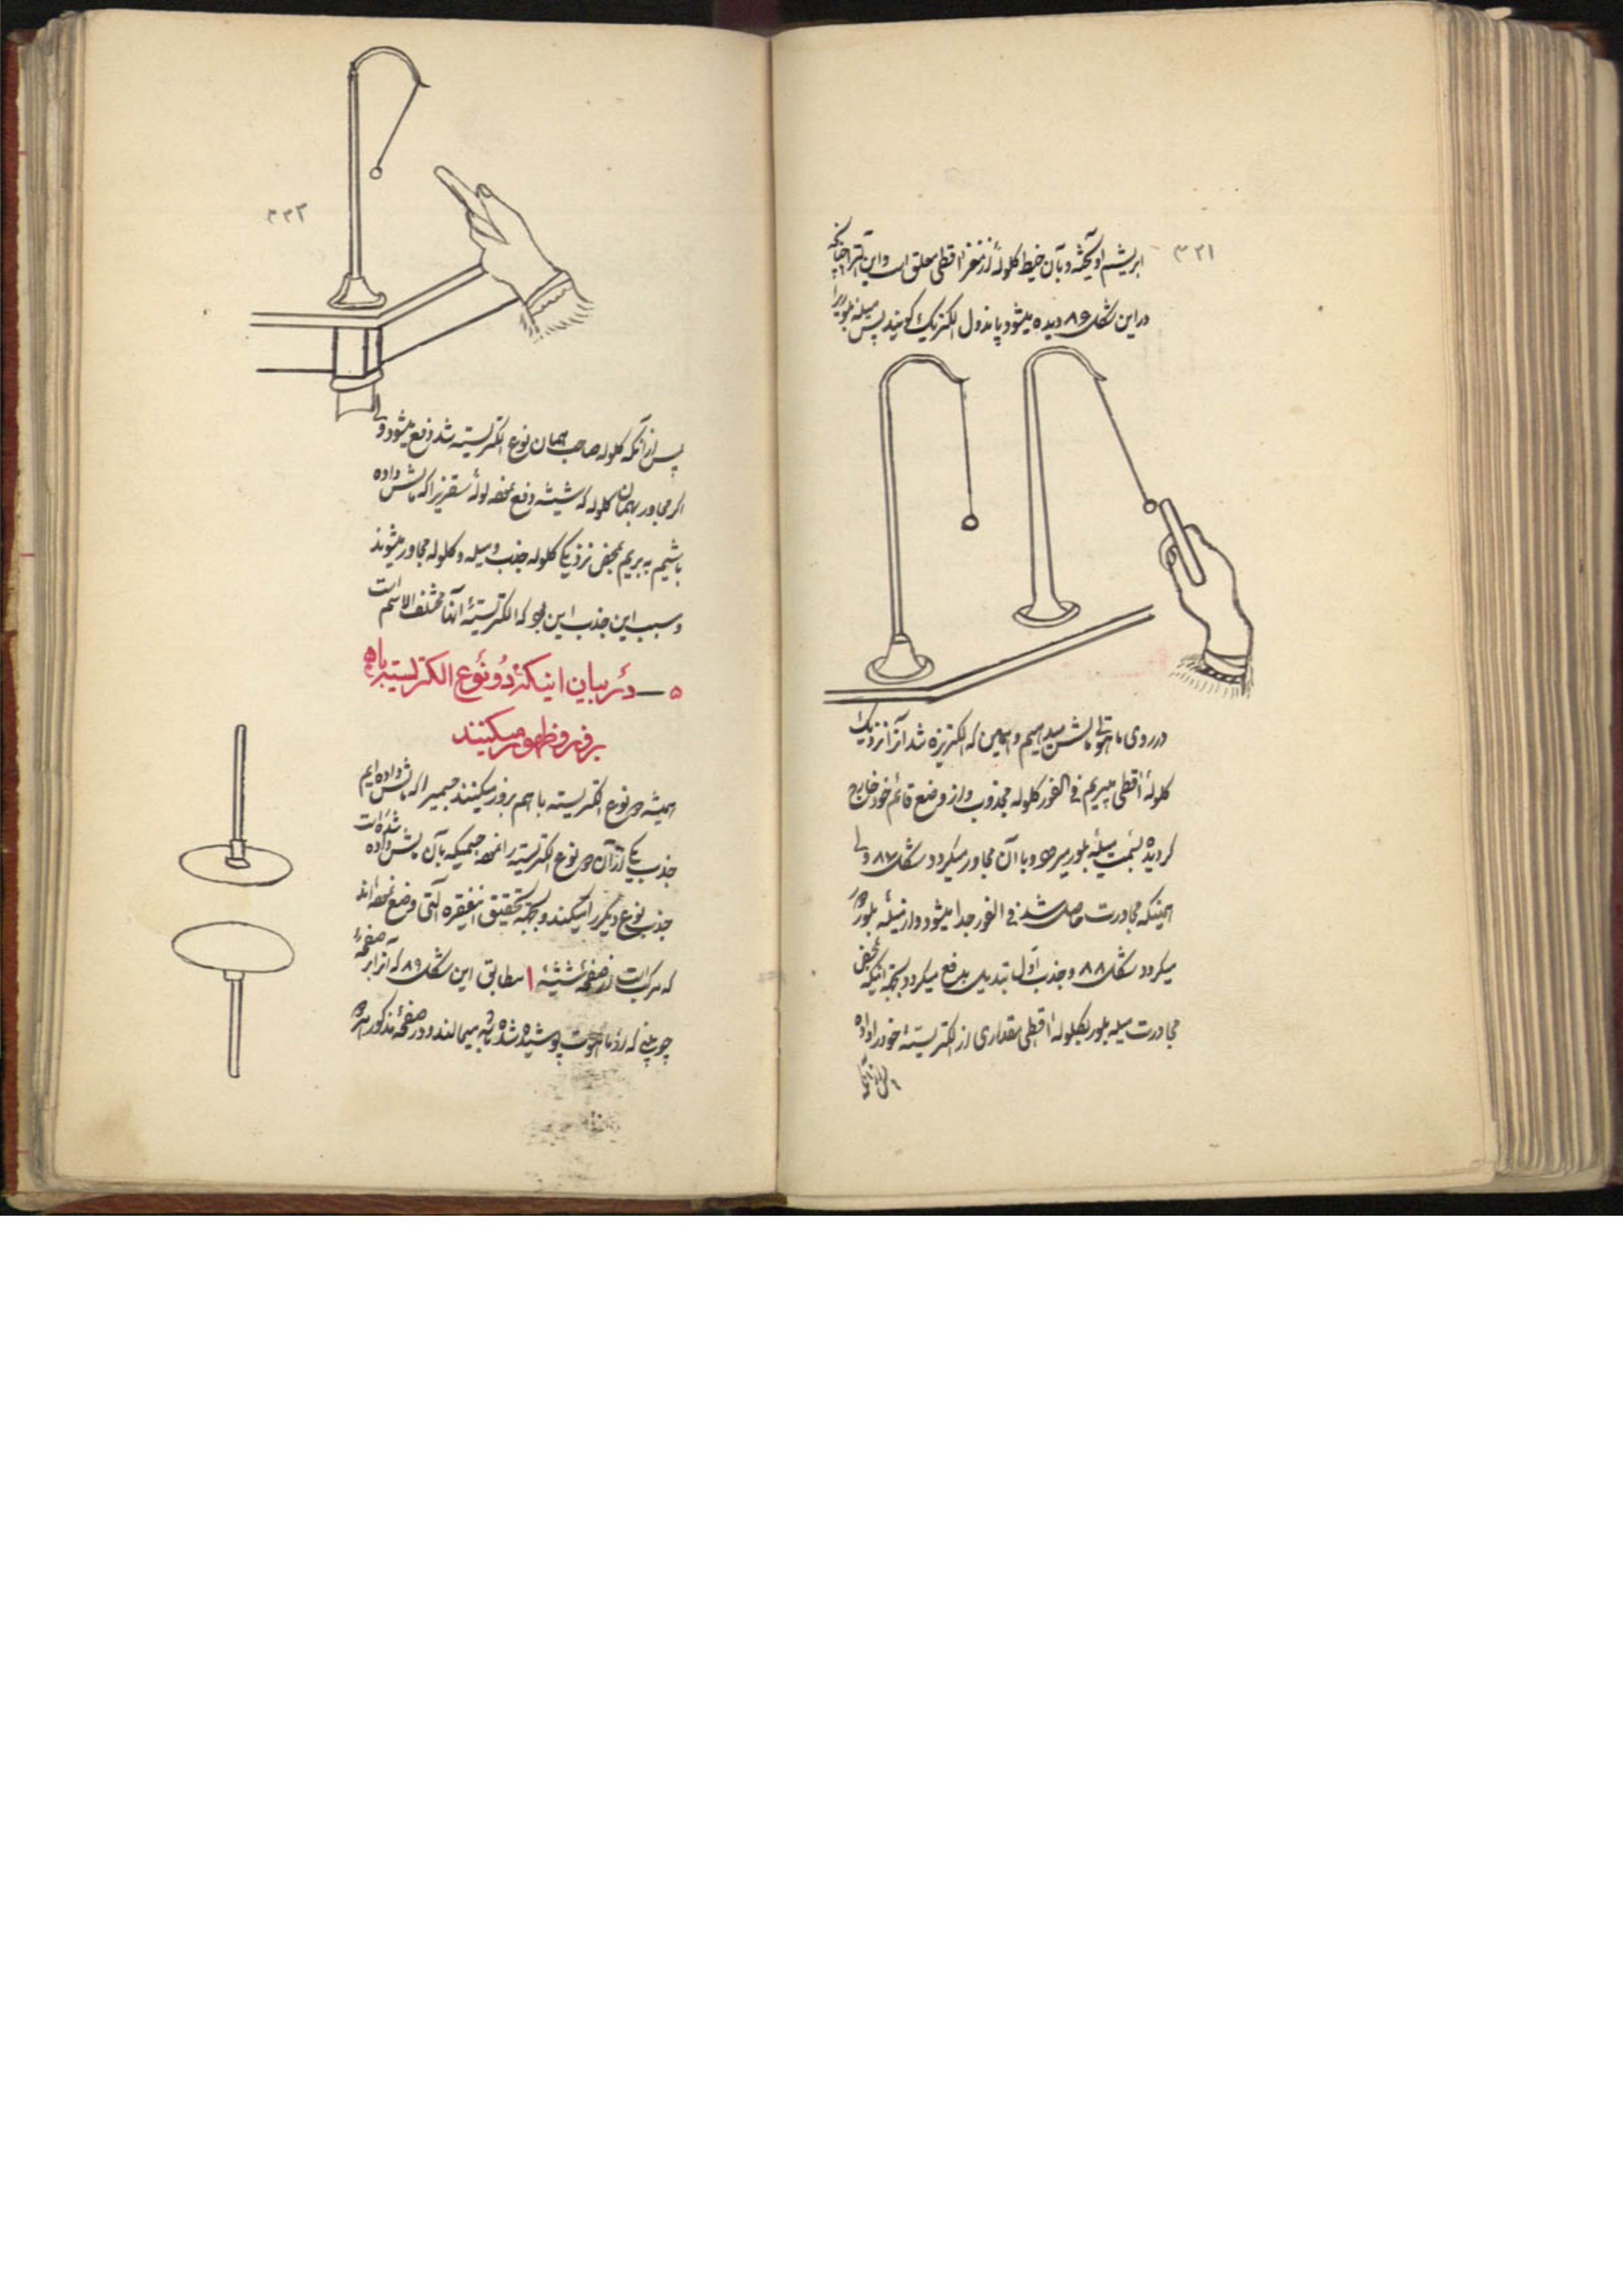 ۳۲۱
ابریشم آویخته و بآن خیط کلولهٔ از مغز اقطی معلق است و این آلترا چنانچه
در این شکل ۸۶ دیده میشود پاندول الکتریک گویند پس میله بلوررا
در روی ماهوتی مالش میدهیم و همین که الکتریزه شد آنرا نزدیک
کلولهٔ اقطی میبریم فی الفور کلوله مجذوب و از وضع قائم خود خارج
گردیده بسمت میلهٔ بلور میرود و با آن مجاور میگردد شکل ۸۷ ولی
همینکه مجاورت حاصل شد فی الفور جدا میشود و از میلهٔ بلور دور
میگردد شکل ۸۸ و جذب اول تبدیل بدفع میگردد بجهة اینکه بمحض
مجاورت میله بلور بکلولهٔ اقطی مقداری از الکتریستهٔ خود را داده
۳۲۲
پس از آنکه کلوله صاحب همان نوع الکتریسته شد دفع میشود ولی
اگر مجاور بهمان کلوله که شیشه دفع نموده لولهٔ سقزیرا که مالش داده
باشیم به بریم بمحض نزدیکی کلوله جذب و میله و کلوله مجاور میشوند
و سبب این جذب این بود که الکتریستهٔ آنها مختلف الاسم است
۵ — در بیان اینکه دو نوع الکتریسته باهم
بروز و ظهور میکنند
همیشه دو نوع الکتریسته با هم بروز میکنند جسمیرا که مالش داده‌ایم
جذب یکی از آن دو نوع الکتریسته را نموده جسمیکه بآن مالش داده شده است
جذب نوع دیگر را میکند و بجهة تحقیق اینفقره آلتی وضع نموده‌اند
که مرکب است از صفحهٔ شیشهٔ ا مطابق این شکل ۸۹ که آنرا بر صفحهٔ
چوبینی که از ماهوت پوشیده شده باشد میمالند و در صفحهٔ مذکور